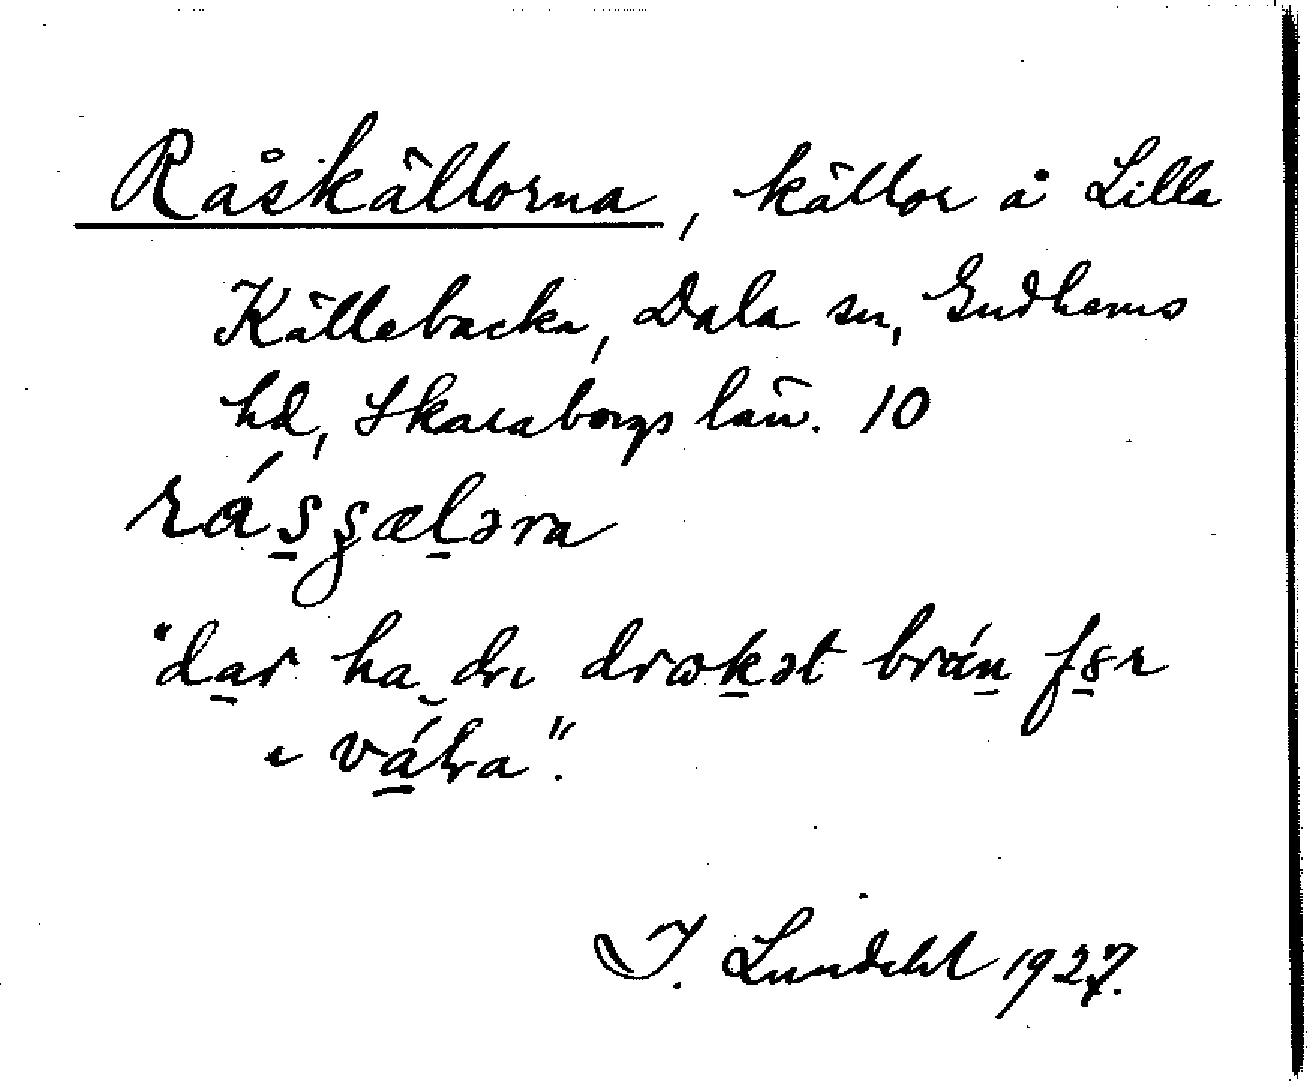 Råskällorna, källor å Lilla
Källebacka, Dala sn, Gudhems
hd, Skaraborgs län. 10
rá̱s̱ʂæḻəra
"da̱r ha dı dræḵət brán̠ fɞ̱r
ı vá̱ɬra".
I. Lundahl 1927.